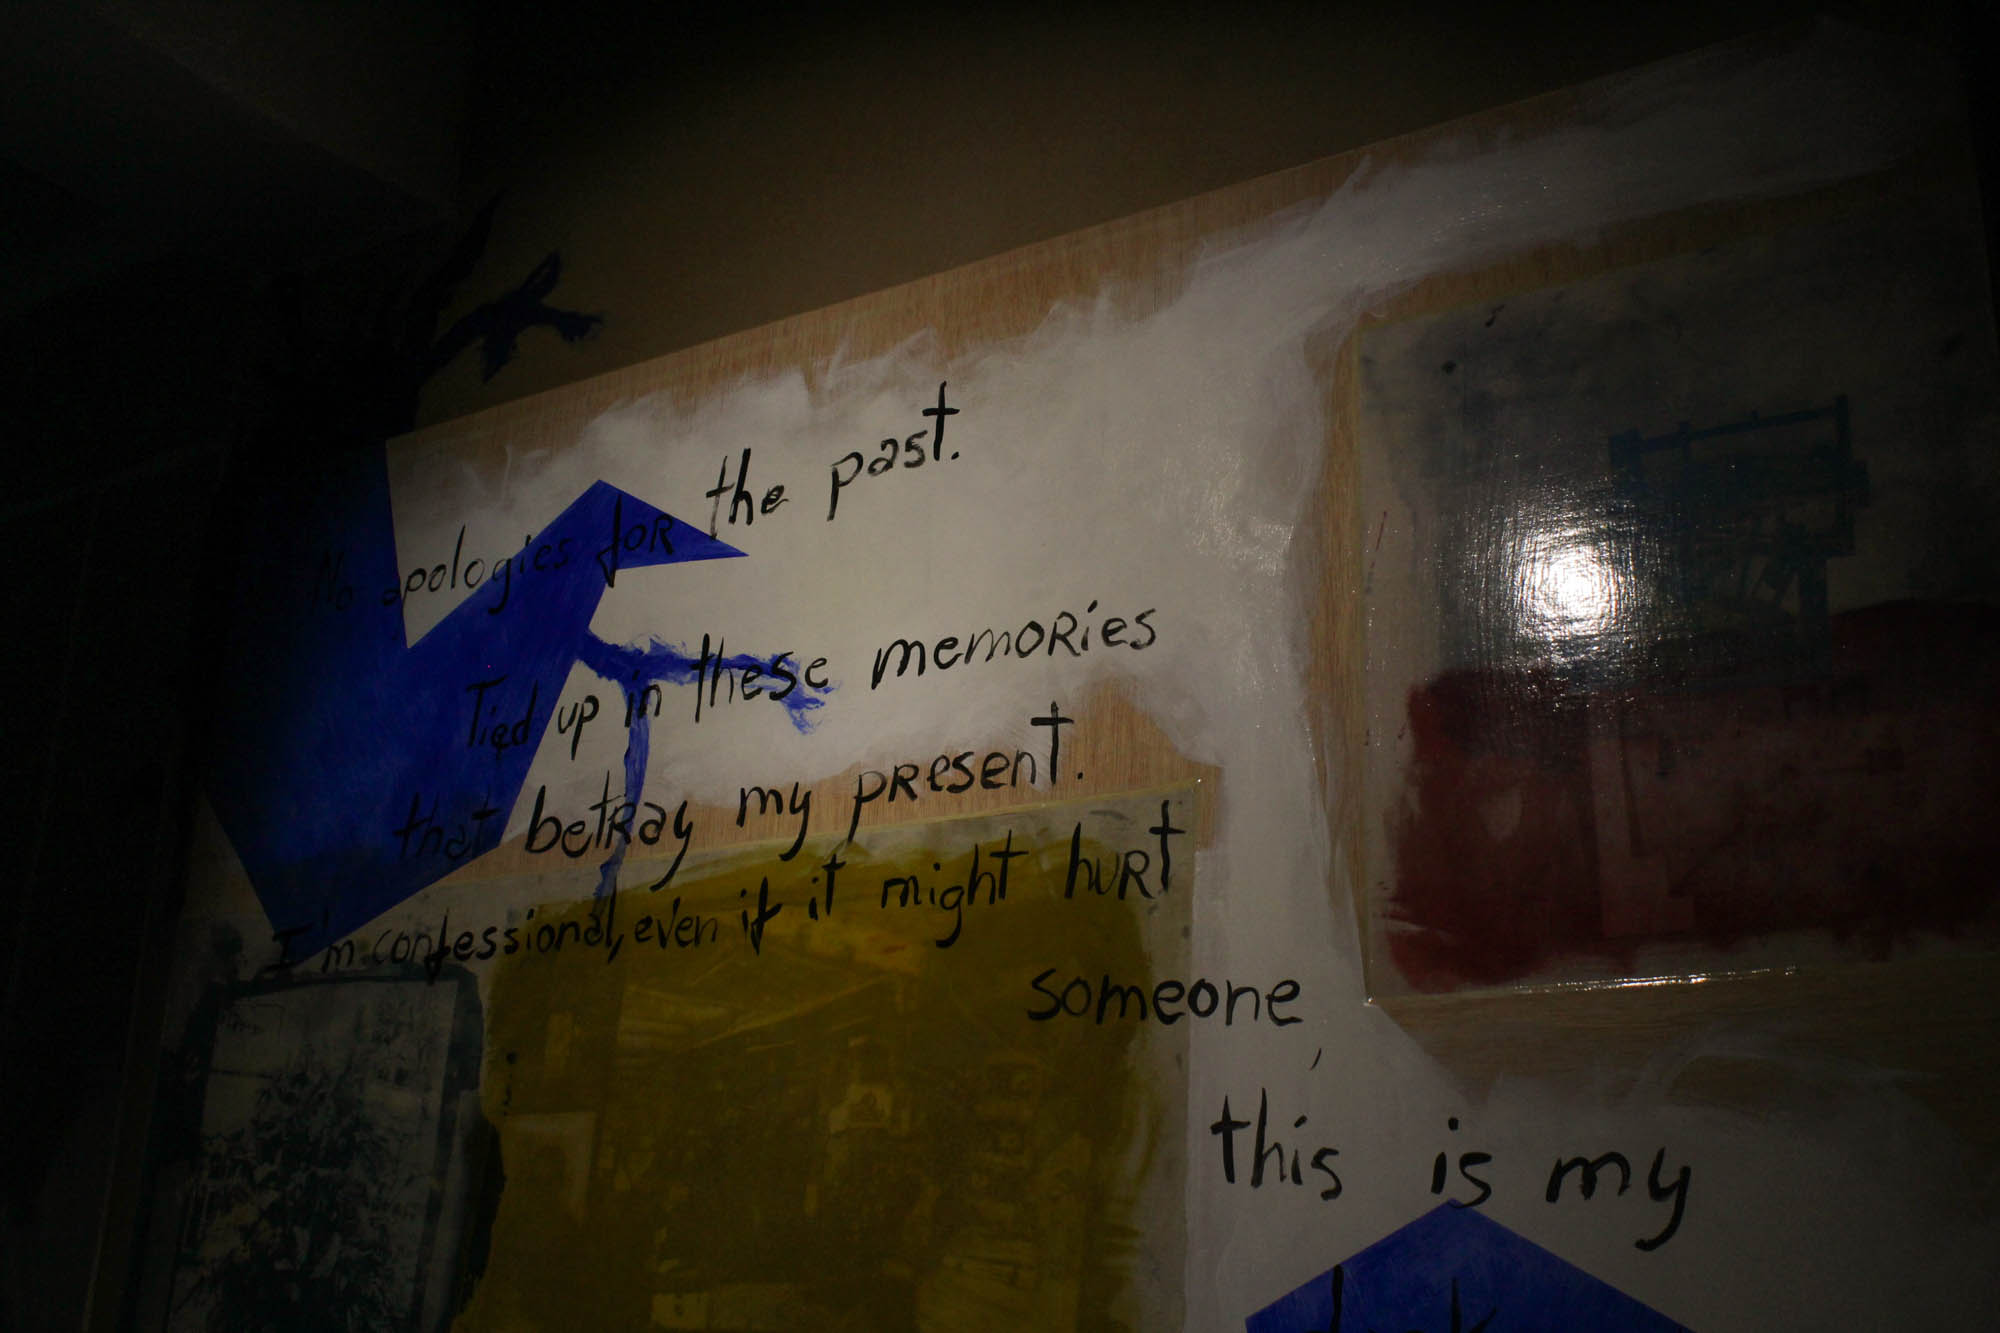 No apologies for the past.
Tied up in these memories
that betray my present.
I'm confessional, even if it might hurt
someone,
this is my